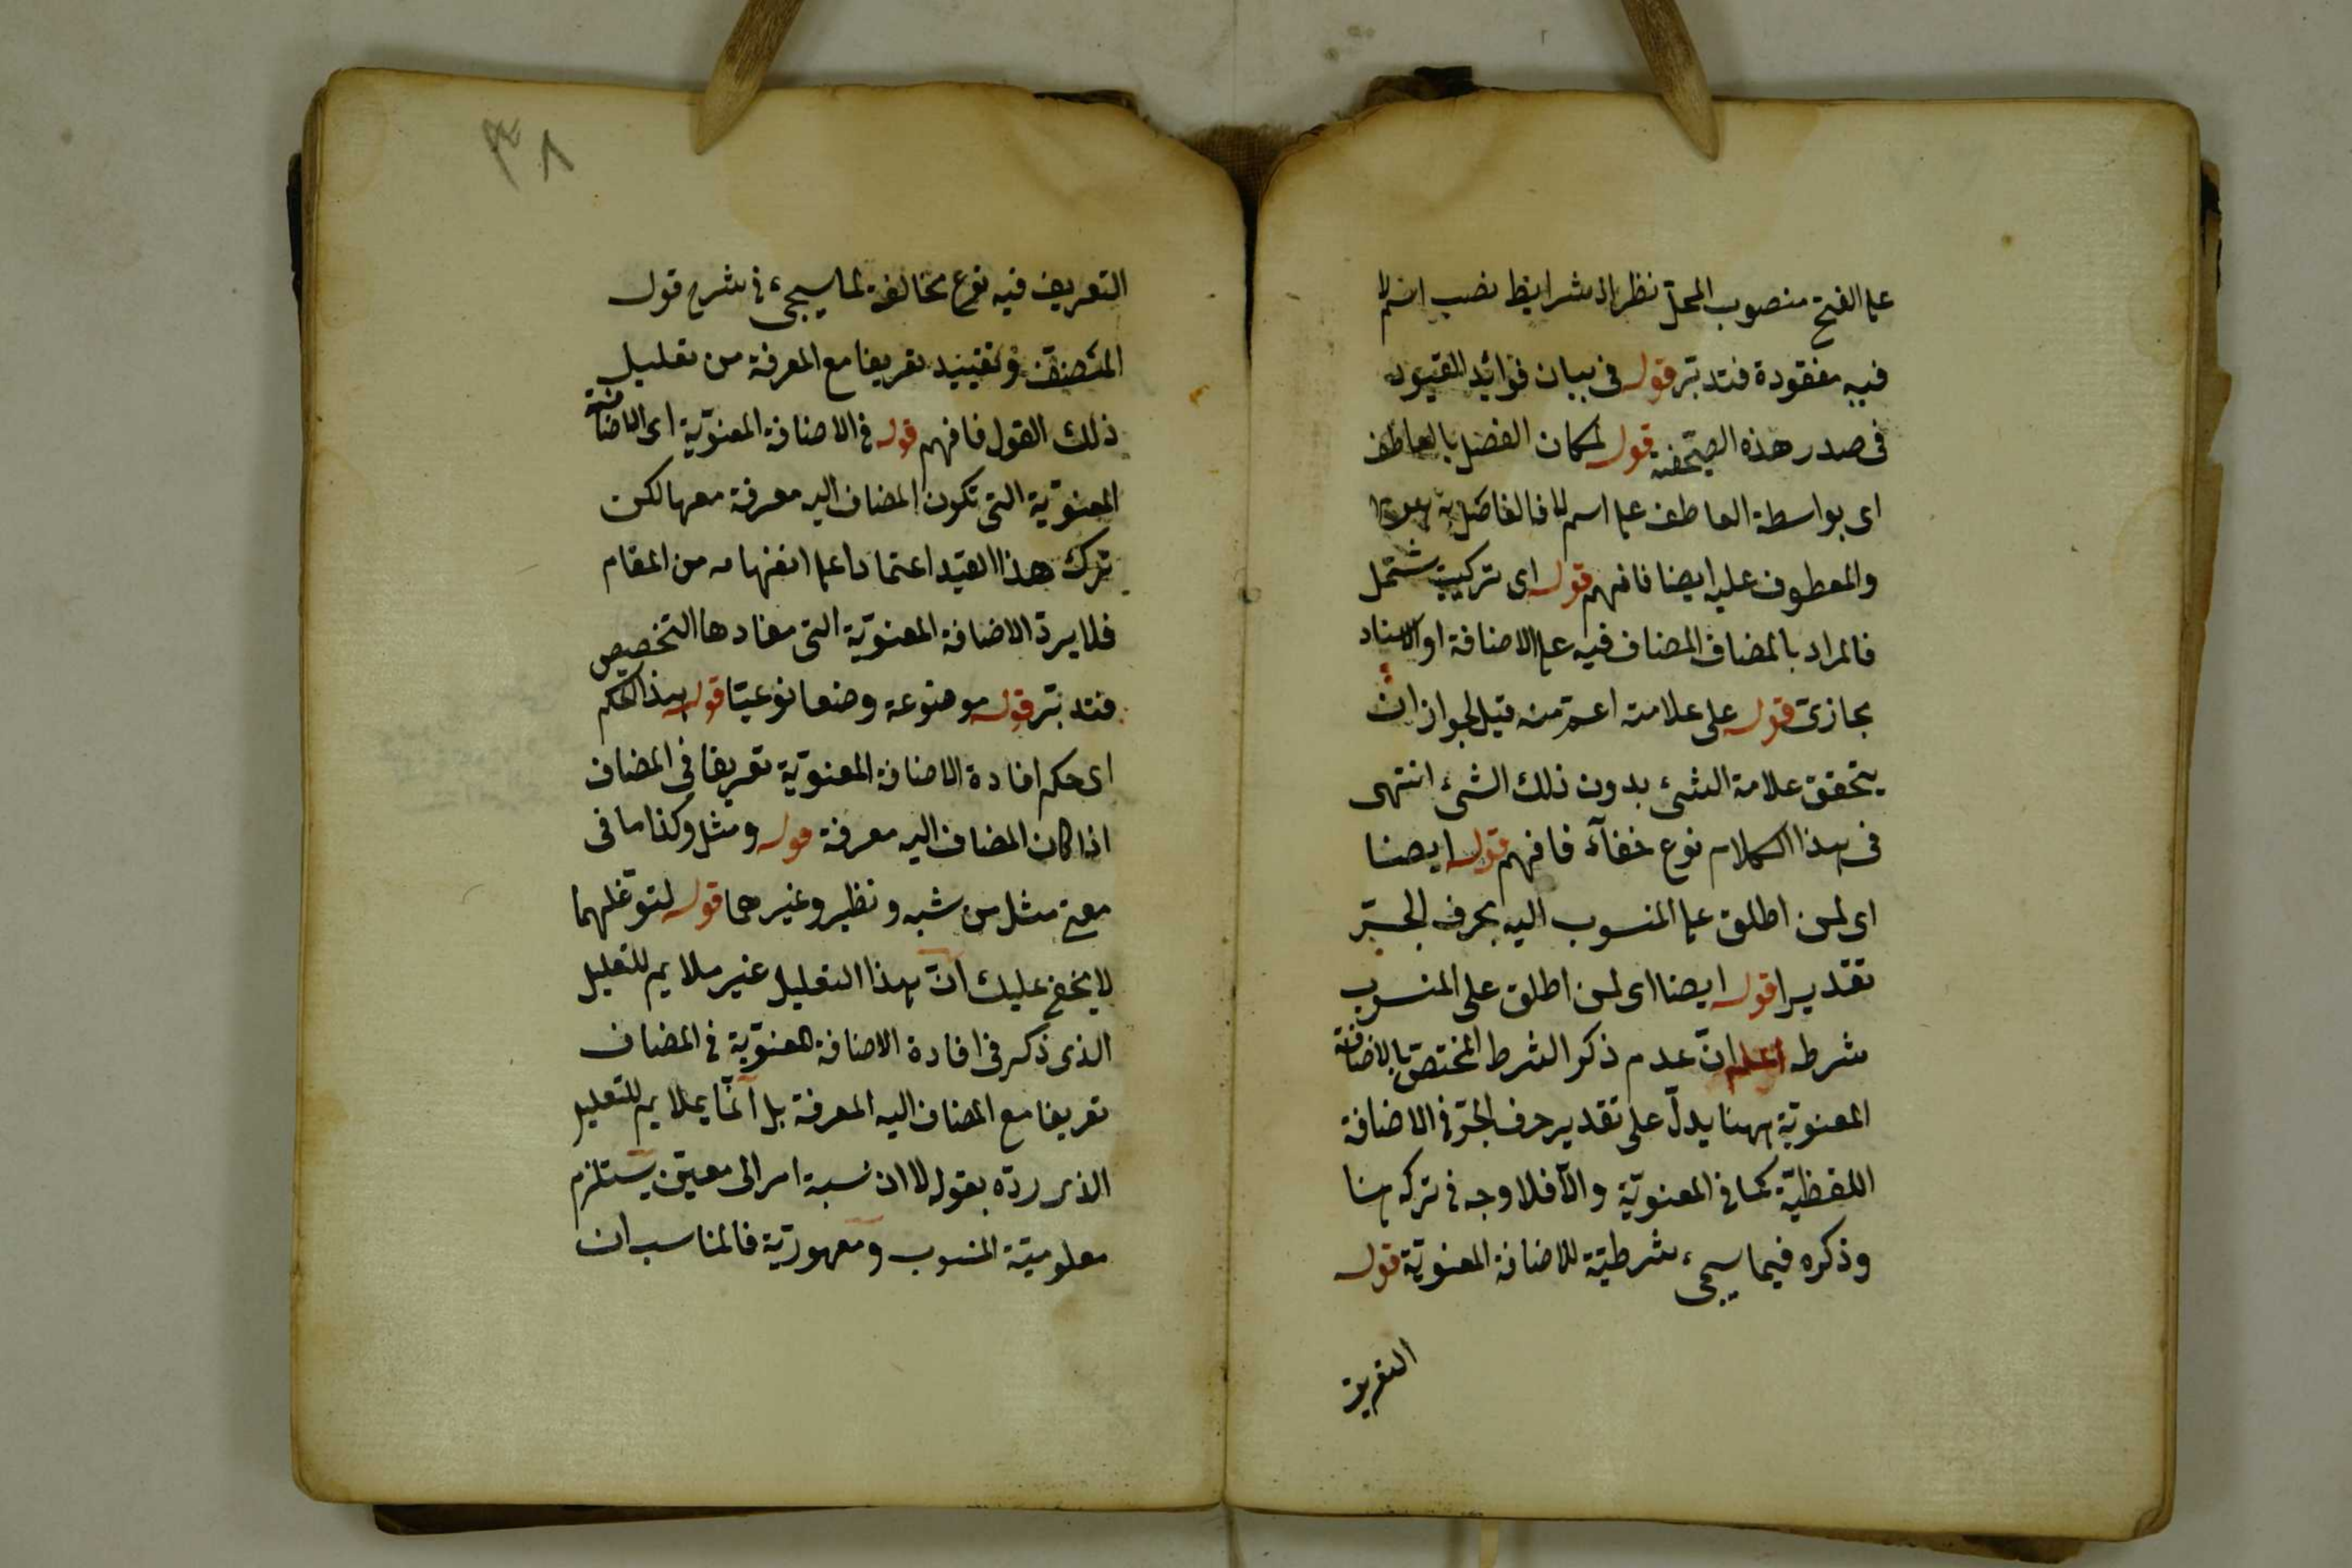 على الفتح منصوب المحل نظرا الى شرايط نصب اسم لا
فيه مفقودة فتدبر قوله فى بيان فوائد القيود
فى صدر هذه الصحيفة قوله لمكان الفصل بالعاطف
اى بواسطة العاطف على اسم لا فالفاصل
والمعطوف عليه ايضا فافهم قوله اى تركيب يشتمل
فالمراد بالمضاف المضاف فيه على الاضافة او الاسناد
مجازى قوله على علامته اعم منه قيل لجواز ان
يتحقق علامة الشىء بدون ذلك الشىء انتهى
فى هذا الكلام نوع خفآء فافهم قوله ايضا
اى لمن اطلق على المنسوب اليه بحرف الجر
تقديرا قوله ايضا اى لمن اطلق على المنسوب
شرطه اعلم ان عدم ذكر الشرط المختص بالاضافة
المعنوية ههنا يدل على تقدير حرف الجر فى الاضافة
اللفظية كما فى المعنوية والا فلا وجه فى تركه هنا
وذكره فيما سيجىء شرطية للاضافة المعنوية قوله
التعريف
٣٨
التعريف فيه نوع مخالفة لما سيجىء فى شرح قول
المصنف وتفيد تعريفا مع المعرفة من تعليل
ذلك القول فافهم قوله فى الاضافة المعنوية اى الاضافة
المعنوية التى تكون المضاف اليه معرفة معها لكن
ترك هذا القيد اعتمادا على انفهامه من المقام
فلا يرد الاضافة المعنوية التى مفادها التخصيص
فتدبر قوله موضوعة وضعا نوعيا قوله بهذا الحكم
اى حكم افادة الاضافة المعنوية تعريفا فى المضاف
اذا كان المضاف اليه معرفة قوله ومثل وكذا ما فى
معنى مثل من شبه ونظير وغيرهما قوله لتوغلهما
لا يخفى عليك ان هذا التعليل غير ملايم للتعليل
الذى ذكر فى افادة الاضافة المعنوية فى المضاف
تعريفا مع المضاف اليه المعرفة بل انما يملايم للتعليل
الذى رده بقوله لا ان نسبة امر الى معين يستلزم
معلومية المنسوب ومعهودية فالمناسب ان